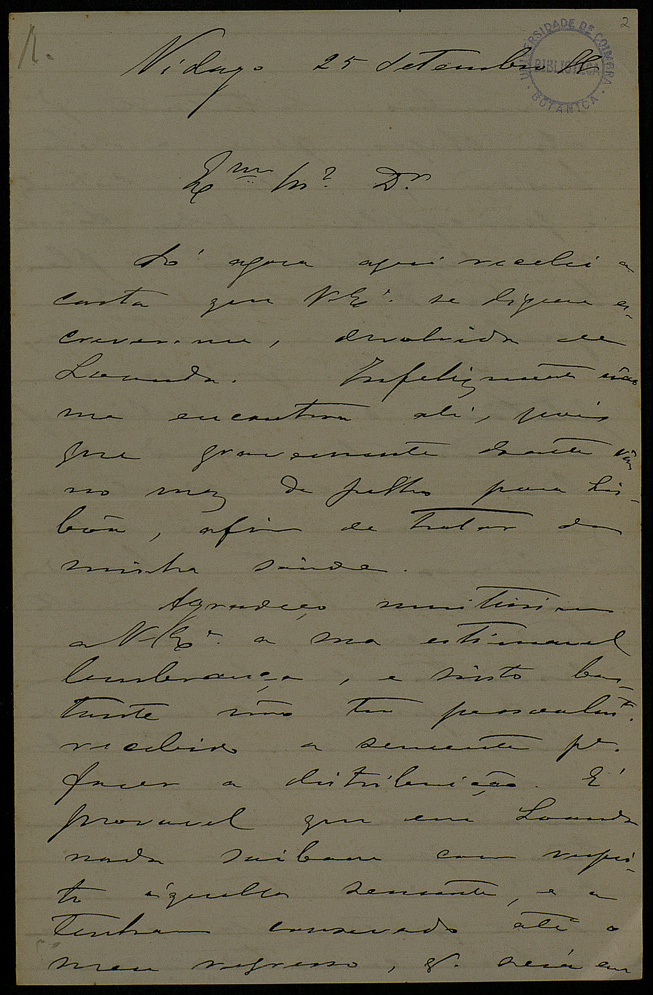 2
1.
UNIVERSIDADE DE COIMBRA
BIBLIOTECA
BOTANICA
Vidago 25 Setembro
Exmo Snr. Dr.
Só agora aqui recebi a
carta que V. Exª. se dignou es-
crever-me, devolvida de
Loanda. Infelizmente não
me encontrou ali, pois
que gravemente doente vim
no mez de Julho para Lis-
bôa, afim de tratar da
minha saúde.
Agradeço muitissimo
a V. Exª. a sua estimavel
lembrança, e sinto bas-
tante não ter pessoalmte.
recebido a semente pª.
fazer a distribuição. É
provavel que em Loanda
nada saibam com respei-
to áquella semente, e a
tenham conservado até o
meu regresso, q. será em